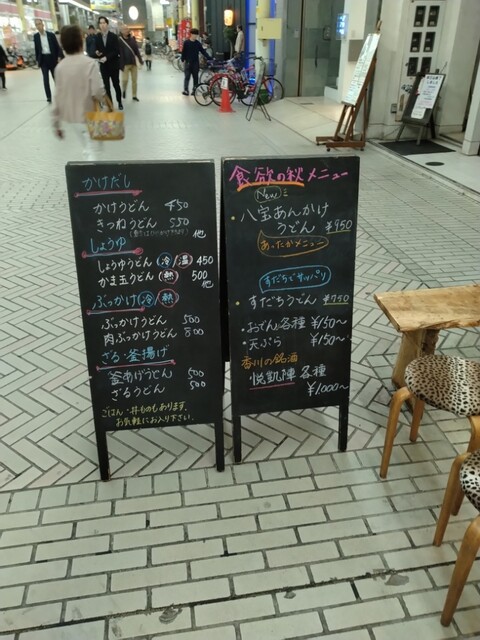 かけだし
かけうどん 450
きつねうどん 550
他
しょうゆ
しょうゆうどん (冷/温) 450
かま玉うどん (熱) 500
他
ぶっかけ (冷) (熱)
ぶっかけうどん 500
肉ぶっかけうどん 800
ざる・釜揚げ
釜あげうどん 500
ざるうどん 500
ごはん・丼ものもあります。
お気軽にお入り下さい。
食欲の秋メニュー
New
・八宝あんかけ
うどん ¥950
あったかメニュー
すだちでサッパリ
・すだちうどん ¥750
・おでん各種 ¥150〜
・天ぷら ¥150〜
香川の銘酒
・悦凱陣 各種
¥1,000〜